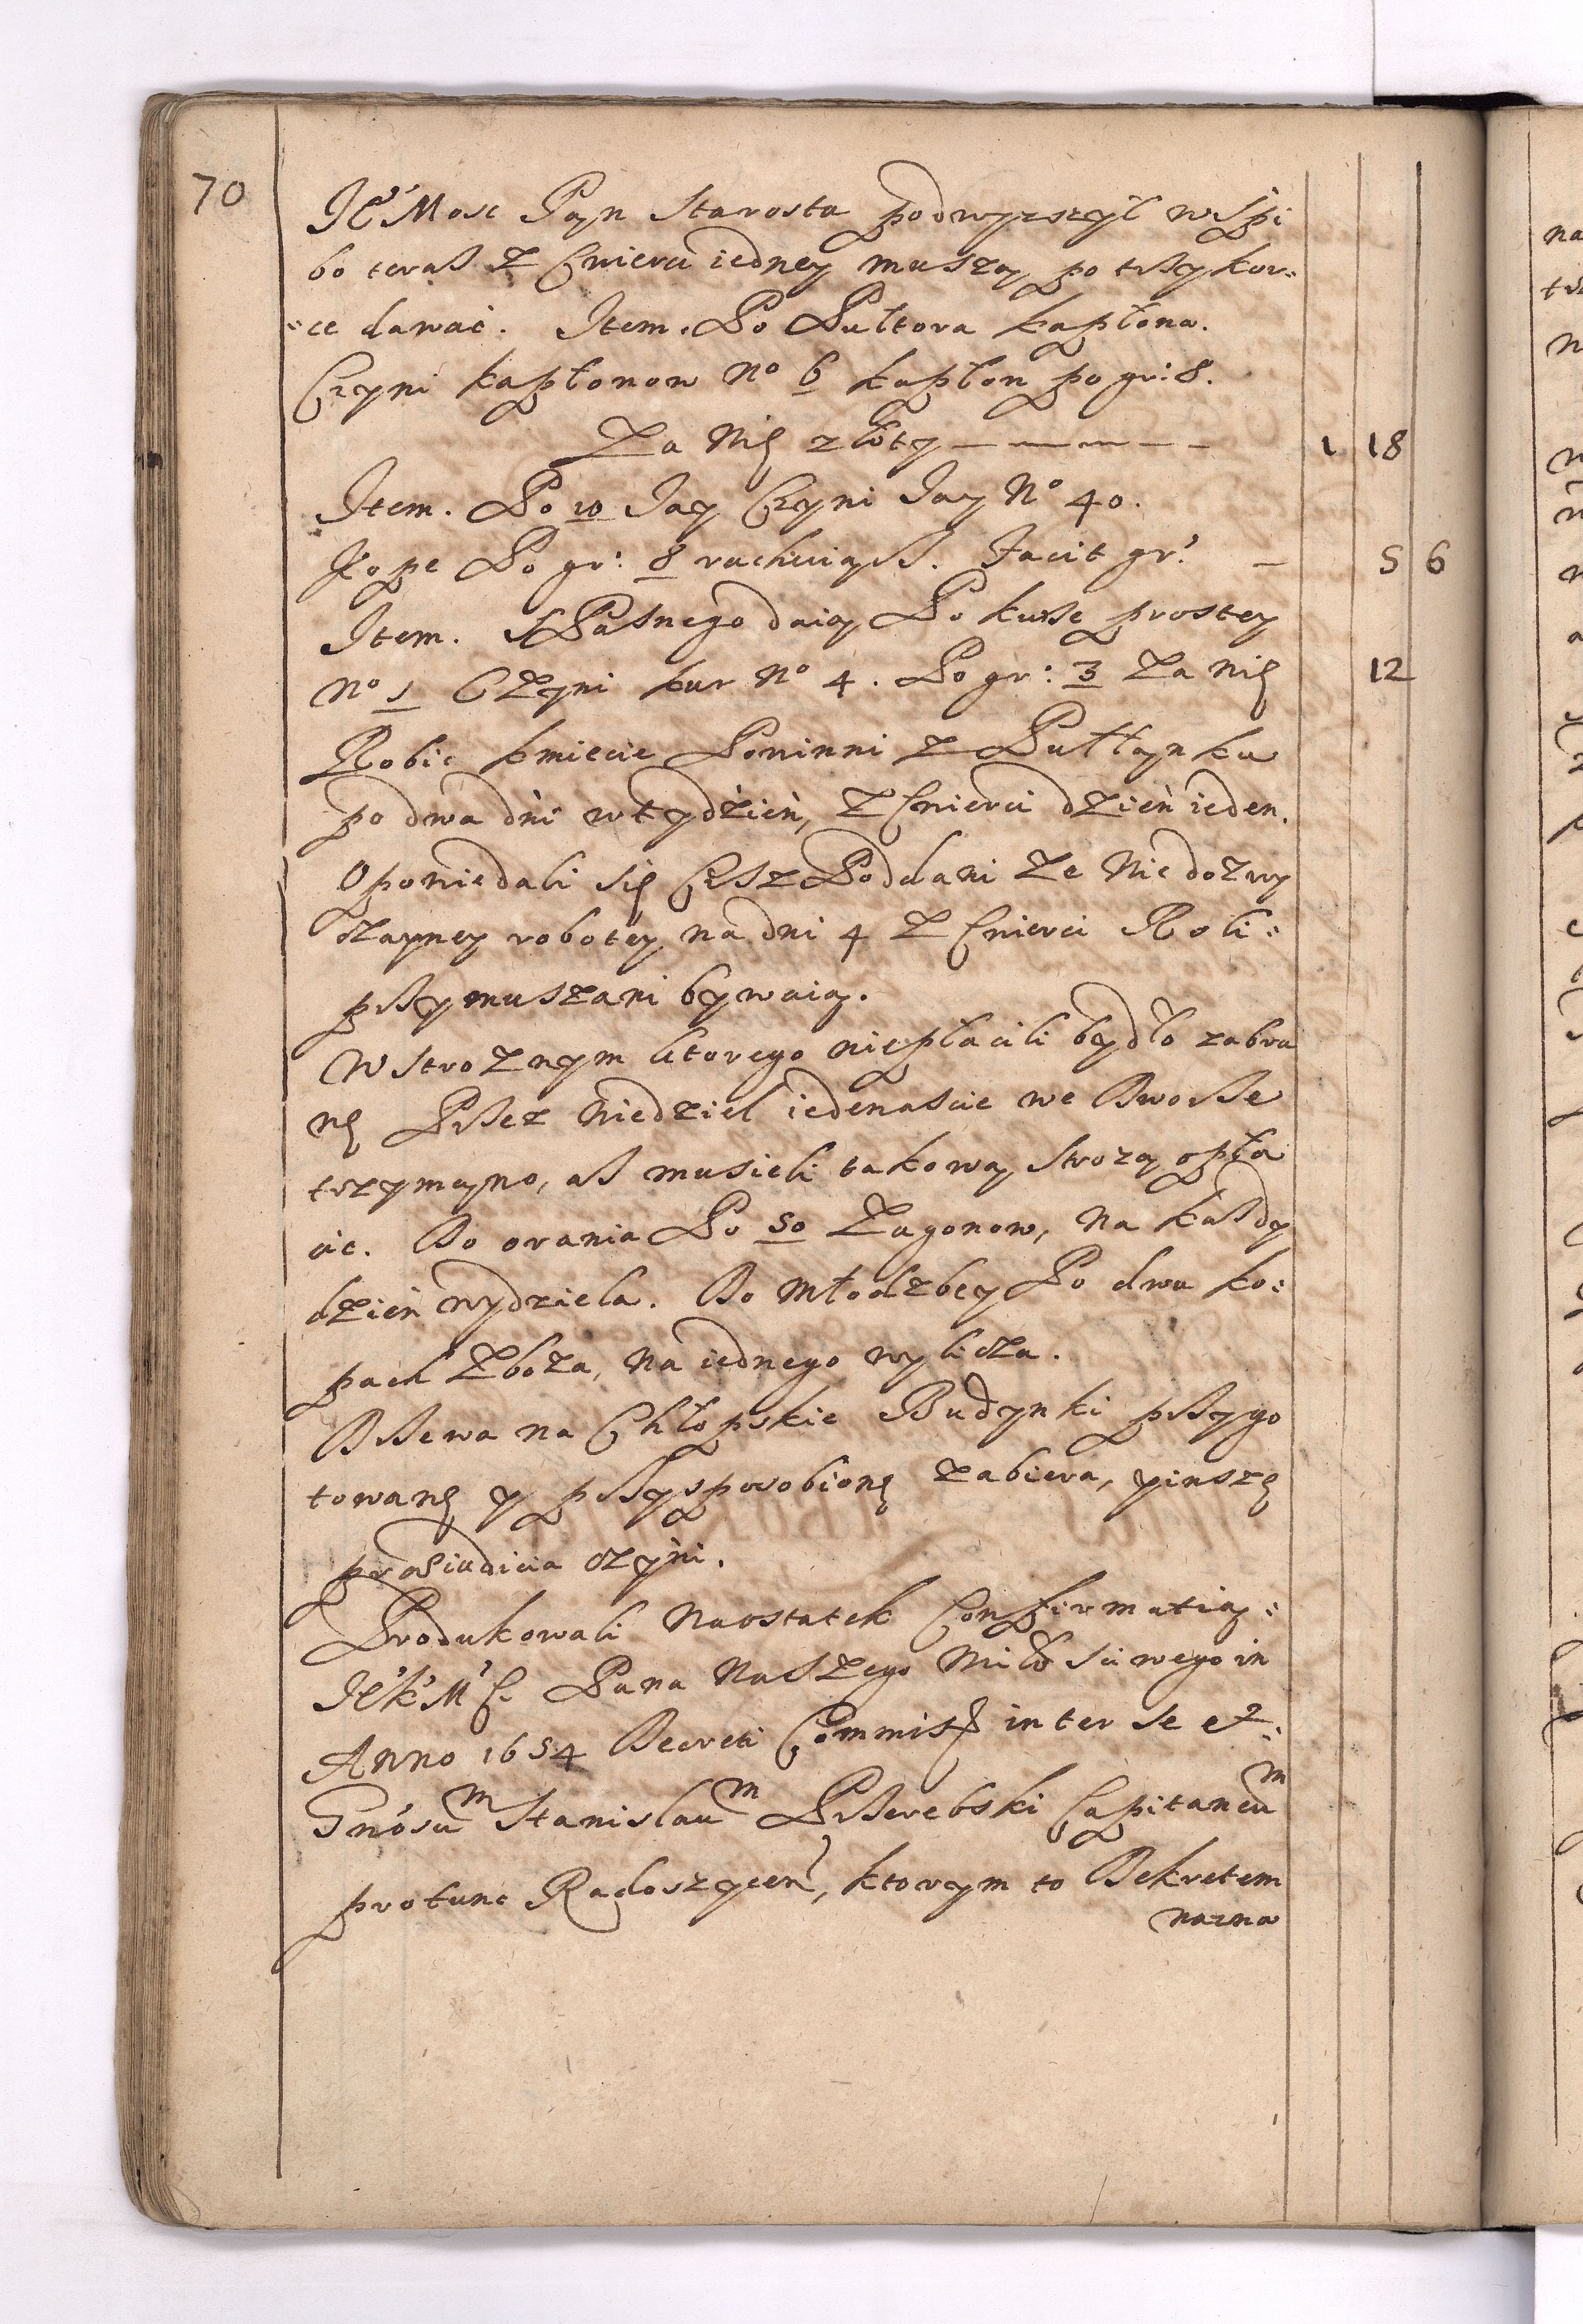 70
Je'Mosc Pąn Starosta podwyzszył wszpi
bo teraß z Cwierci iedney muszą po trzy kor=
=ce dawać. Item. Po Pułtora kapłona.
Czyni kapłonow No 6 kapłon po gr: 8.
Za Nię złoty — — — — — 1 18
Item. Po 10 Jay Czyni Jay No 40.
Kope Po gr: 8 rachuiąß. Facit gr: — 5 6
Item. Własnego daią Po kurze prostey
No 1 Czyni kur No 4. Po gr: 3 Za nię 12
Robic kmiecie Powinni z Pułłąnku
po dwa dni w tydzień, z Cwierci dzień ieden.
Opowiedali się Cisz Poddani ze Nie do zwy
czayney robotey na dni 4 z Cwierci Roli=
przymuszani bywaią.
W Stroznym ktorego niepłacili bydło zabra
nę Przez Niedziel iedenascie we Dworze
trzymąno, aß musieli takową Strozą opła
cic. Do orania Po 50 Zagonow, Na każdy
dzień wydziela. Do Młodzbey Po dwu ko=
pach Zboza, Na iednego wylicza.
Drzewa na Chłopskie Budynki przygo
towanę y przysposobionę zabiera, yinszę
praeiudicia czyni.
Produkowali Naostatek Confirmatią=
Je'k'M'C. Pana Naszego Miłosciwego in
Anno 1654 Decreti Commiss inter se et
Gnosum Stanislaum Przerebski Capitaneum
protunc Radoszycen, ktorym to Dekretem
nazna